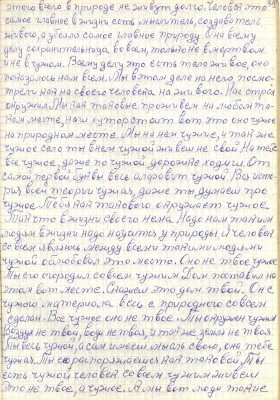 этого всего в природе не живут долго. Человек это
самое главное в жизни есть мыслитель, создатель
живого, а убили самое главное природу. Она всему
делу сохранительница во всем, только не в мертвом,
а не в чужом. Всему делу это есть тело живое, оно
понадобилось нам всем. Мы в этом деле на него, посмо-
трели как на своего человека на живого. Нас
окружил. Мы как таковые проживем на любом та-
ком месте, наш хутор стоит вот это оно чужое
на природном месте. Мы на нем чужие, и так же
чужое село ты в нем чужой живешь не свой. На тебе
все чужое, даже по чужой дорожке ходишь. От
самой первой буквы весь алфавит чужой. Вся исто-
рия всей теории чужая, даже ты думаешь про
чужое. Тебя как такового окружает чужое.
Так что в жизни своего нема. Надо нам таким
людям в жизни надо научиться у природы. А человек
совсем являюсь между всеми такими людьми
чужой облюбовал это место. Оно не твое чужое
Ты его огородил совсем чужим. Дом поставил на
этом вот месте. Скажем это дом твой. Он с
чужого материала весь с природного совсем
сделан. Все чужое оно не твое. Ты окружен чужим
Воздух не твой, вода не твоя, и так же земля не твоя.
Ты весь чужой, а сам имеешь мысль свою, она тебе
чужая. Ты ей распоряжаешься как таковой. Ты
есть чужой человек совсем чужим живешь
Это не твое, а чужое. А мы вот люди такие